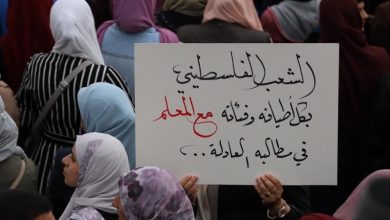 الشعب الفلسطيني
بكل أطيافه وفئاته مع المعلم
في مطالبه العادلة ..